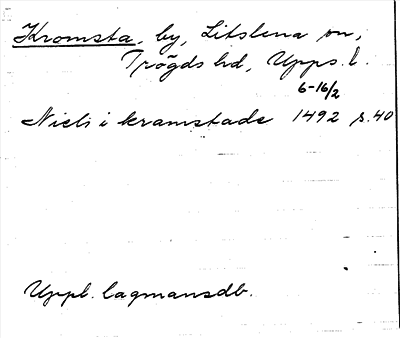 Kromsta, by, Litslena sn,
Trögds hd, Upps. l.
6-16/2
Niels i kramstade 1492 s. 40
Uppl. lagmansdb.